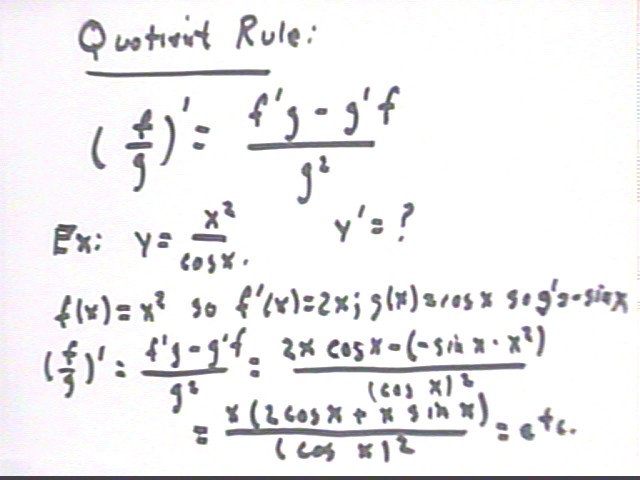 Quotient Rule:
(f/g)' = (f'g - g'f)/g²
Ex: y = x²/cosx. y' = ?
f(x) = x² so f'(x) = 2x; g(x) = cos x so g' = -sin x
(f/g)' = (f'g - g'f)/g² = (2x cos x - (-sin x · x²))/(cos x)²
= x(2cos x + x sin x)/(cos x)² = etc.